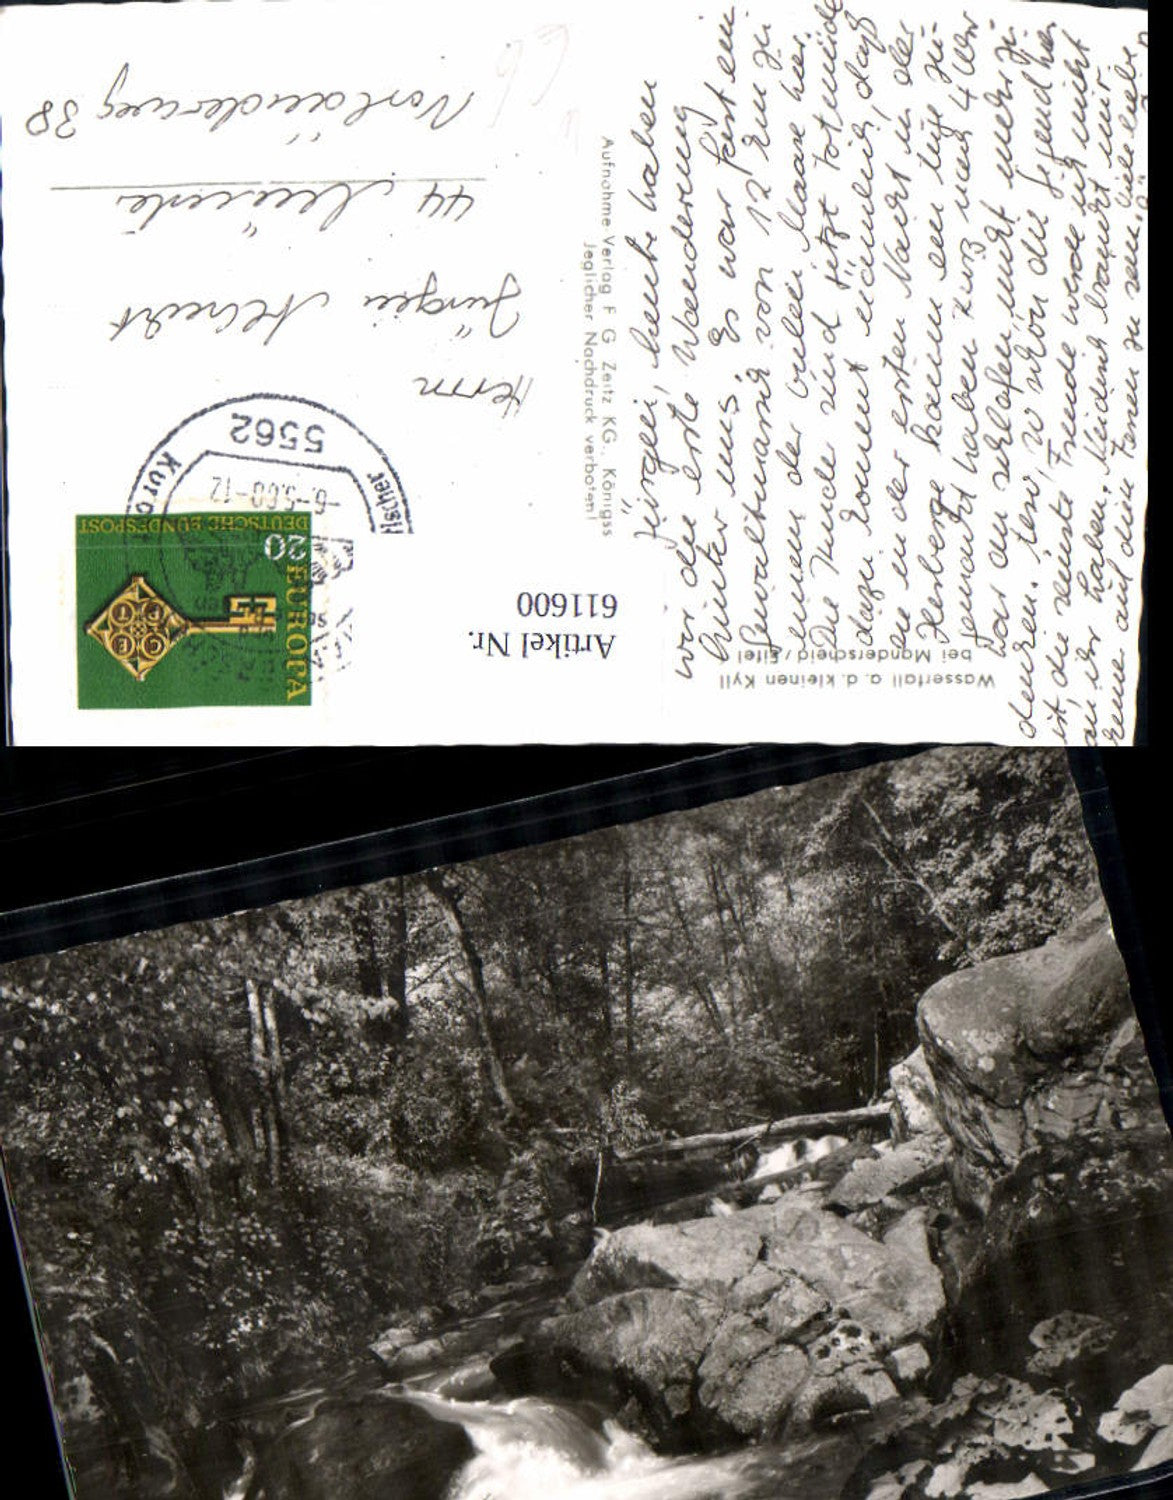 Wasserfall a. d. kleinen Kyll
bei Manderscheid / Eifel
Artikel Nr.
611600
Aufnahme Verlag F G Zeitz KG., Königss
Jeglicher Nachdruck verboten!
EUROPA
20
DEUTSCHE BUNDESPOST
CEPT
5562
-5.68-12
Herrn
Jürgen
44 Münster
38
Jürgen, heute haben
wir die erste Wanderung
hinter uns. Es war fast ein
Gewaltmarsch von 12 km zu
einem der vielen Maare hier.
Die Kinder sind jetzt totmüde
dazu kommt nämlich, daß
sie in der ersten Nacht in der
Herberge kaum ein Auge zu-
gemacht haben und nach 4 Uhr
war an schlafen nicht mehr zu
denken. schön die Gegend hier
ist, die reinste Freude werde ich nicht
an ihr haben. brauch mir
keine auf diese Ferien zu sein. Viele liebe